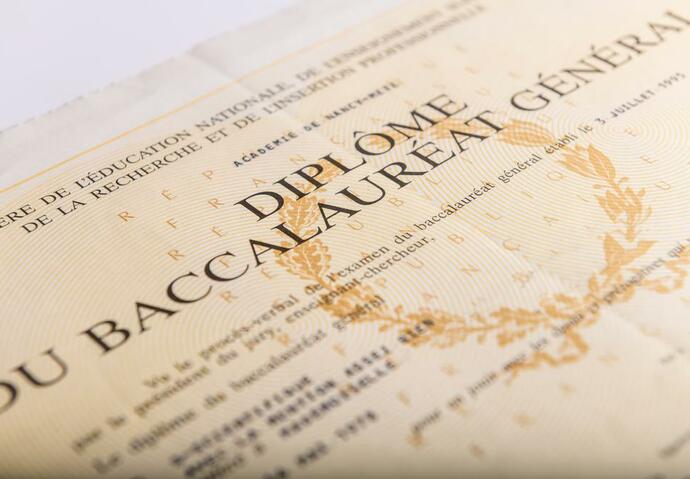 ÈRE DE L'ÉDUCATION NATIONALE DE L'ENSEIGNEMENT SUP
DE LA RECHERCHE ET DE L'INSERTION PROFESSIONNELLE
ACADEMIE DE NANCY-METZ
DIPLÔME
DU BACCALAURÉAT GÉNÉRAL
Vu le procès-verbal de l'examen du baccalauréat général établi le 3 JUILLET 1995
par le président du jury, enseignant-chercheur,
Le diplôme du baccalauréat général
MENTION ASSEZ BIEN
MADEMOISELLE
pour en jouir avec les droits et prérogatives qui